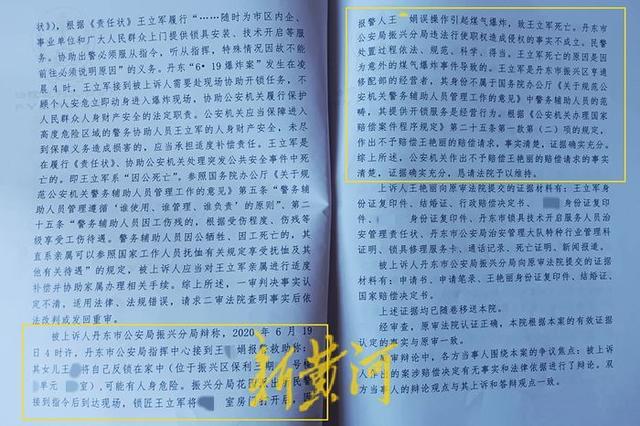 状》），根据《责任状》王立军履行“……随时为市区内企、
事业单位和广大人民群众上门提供锁具安装、技术开启等服
务。协助出警必须服从指令，听从指挥，特殊情况因故不能
前往必须说明原因”的义务。丹东“6·19爆炸案”发生在凌
晨4时，王立军接到被上诉人需要赴现场协助开锁任务，不
顾个人安危立即动身进入爆炸现场，协助公安机关履行保护
人民群众人身财产安全的法定职责。公安机关应当保障进入
高度危险区域的警务协助人员王立军的人身财产安全，未尽
到保障义务造成损害的，应当承担适度补偿责任。王立军是
在履行《责任状》、协助公安机关处理突发公共安全事件中死
亡的。即王立军系“因公死亡”。参照国务院办公厅《关于规
范公安机关警务辅助人员管理工作的意见》第五条“警务辅
助人员管理遵循‘谁使用、谁管理、谁负责’的原则”、第二
十五条“警务辅助人员因工伤残的，根据受伤程度、伤残等
级享受工伤待遇。警务辅助人员因公牺牲、因工死亡的，其
直系亲属可以参照国家工作人员抚恤有关规定享受抚恤及其
他有关待遇”的规定，被上诉人应当对王立军亲属进行适度
补偿并协助家属办理相关手续。综上所述，一审判决事实认
定不清，适用法律、法规错误，请求二审法院查明事实后依
法改判或发回重审。
被上诉人丹东市公安局振兴分局辩称，2020年6月19
日4时许，丹东市公安局指挥中心接到王 娟报警求助称：
其女儿王 将自己反锁在家中（位于振兴区保利三期 号楼
单元 室），可能有人身危险。振兴分局花园 出所民警
接到指令后到达现场，锁匠王立军将 室房门打开后，因
报警人王 娟误操作引起煤气爆炸，致王立军死亡。丹东市
公安局振兴分局违法行使职权造成侵权的事实不成立。民警
处置过程依法、规范、科学、得当。王立军死亡的原因是因
为意外的煤气爆炸事件导致的。王立军是丹东市振兴区亨通
修配部的经营者，其身份不属于国务院办公厅《关于规范公
安机关警务辅助人员管理工作的意见》中警务辅助人员的范
畴，其提供开锁服务是经营行为。根据《公安机关办理国家
赔偿案件程序规定》第二十五条第一款第（二）项的规定，
作出不予赔偿王艳的赔偿请求，事实清楚，证据确实充分。
综上所述，公安机关作出不予赔偿王艳的赔偿请求的事实清
楚，证据确实充分，恳请法院予以维持。
上诉人王艳丽向原审法院提交的证据材料有：王立军身
份证复印件、结婚证、行政赔偿决定书、 身份证复印件、
身份证复印件、丹东市锁具技术开启服务人员治
安管理责任状、丹东市公安局治安管理大队特种行业管理科
证明、锁具修理服务卡、通话记录、死亡证明、新闻报道。
被上诉人丹东市公安局振兴分局向原审法院提交的证据
材料有：申请书、申请笔录、王艳丽身份证复印件、结婚证、
国家赔偿决定书。
上述证据均已随卷移送本院。
经审查，原审法院认证正确，本院根据本案的有效证据
认定的事实与原审一致。
审庭审辩论中，各方当事人围绕本案的争议焦点：被上诉
人作出的案涉赔偿决定有无事实和法律依据进行了辩论。双
方当事人的辩论观点与其上诉和答辩观点一致。
新黄河